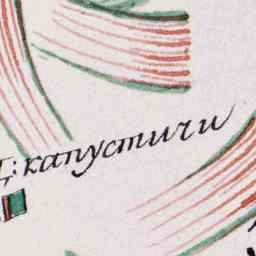 Д: капустичи